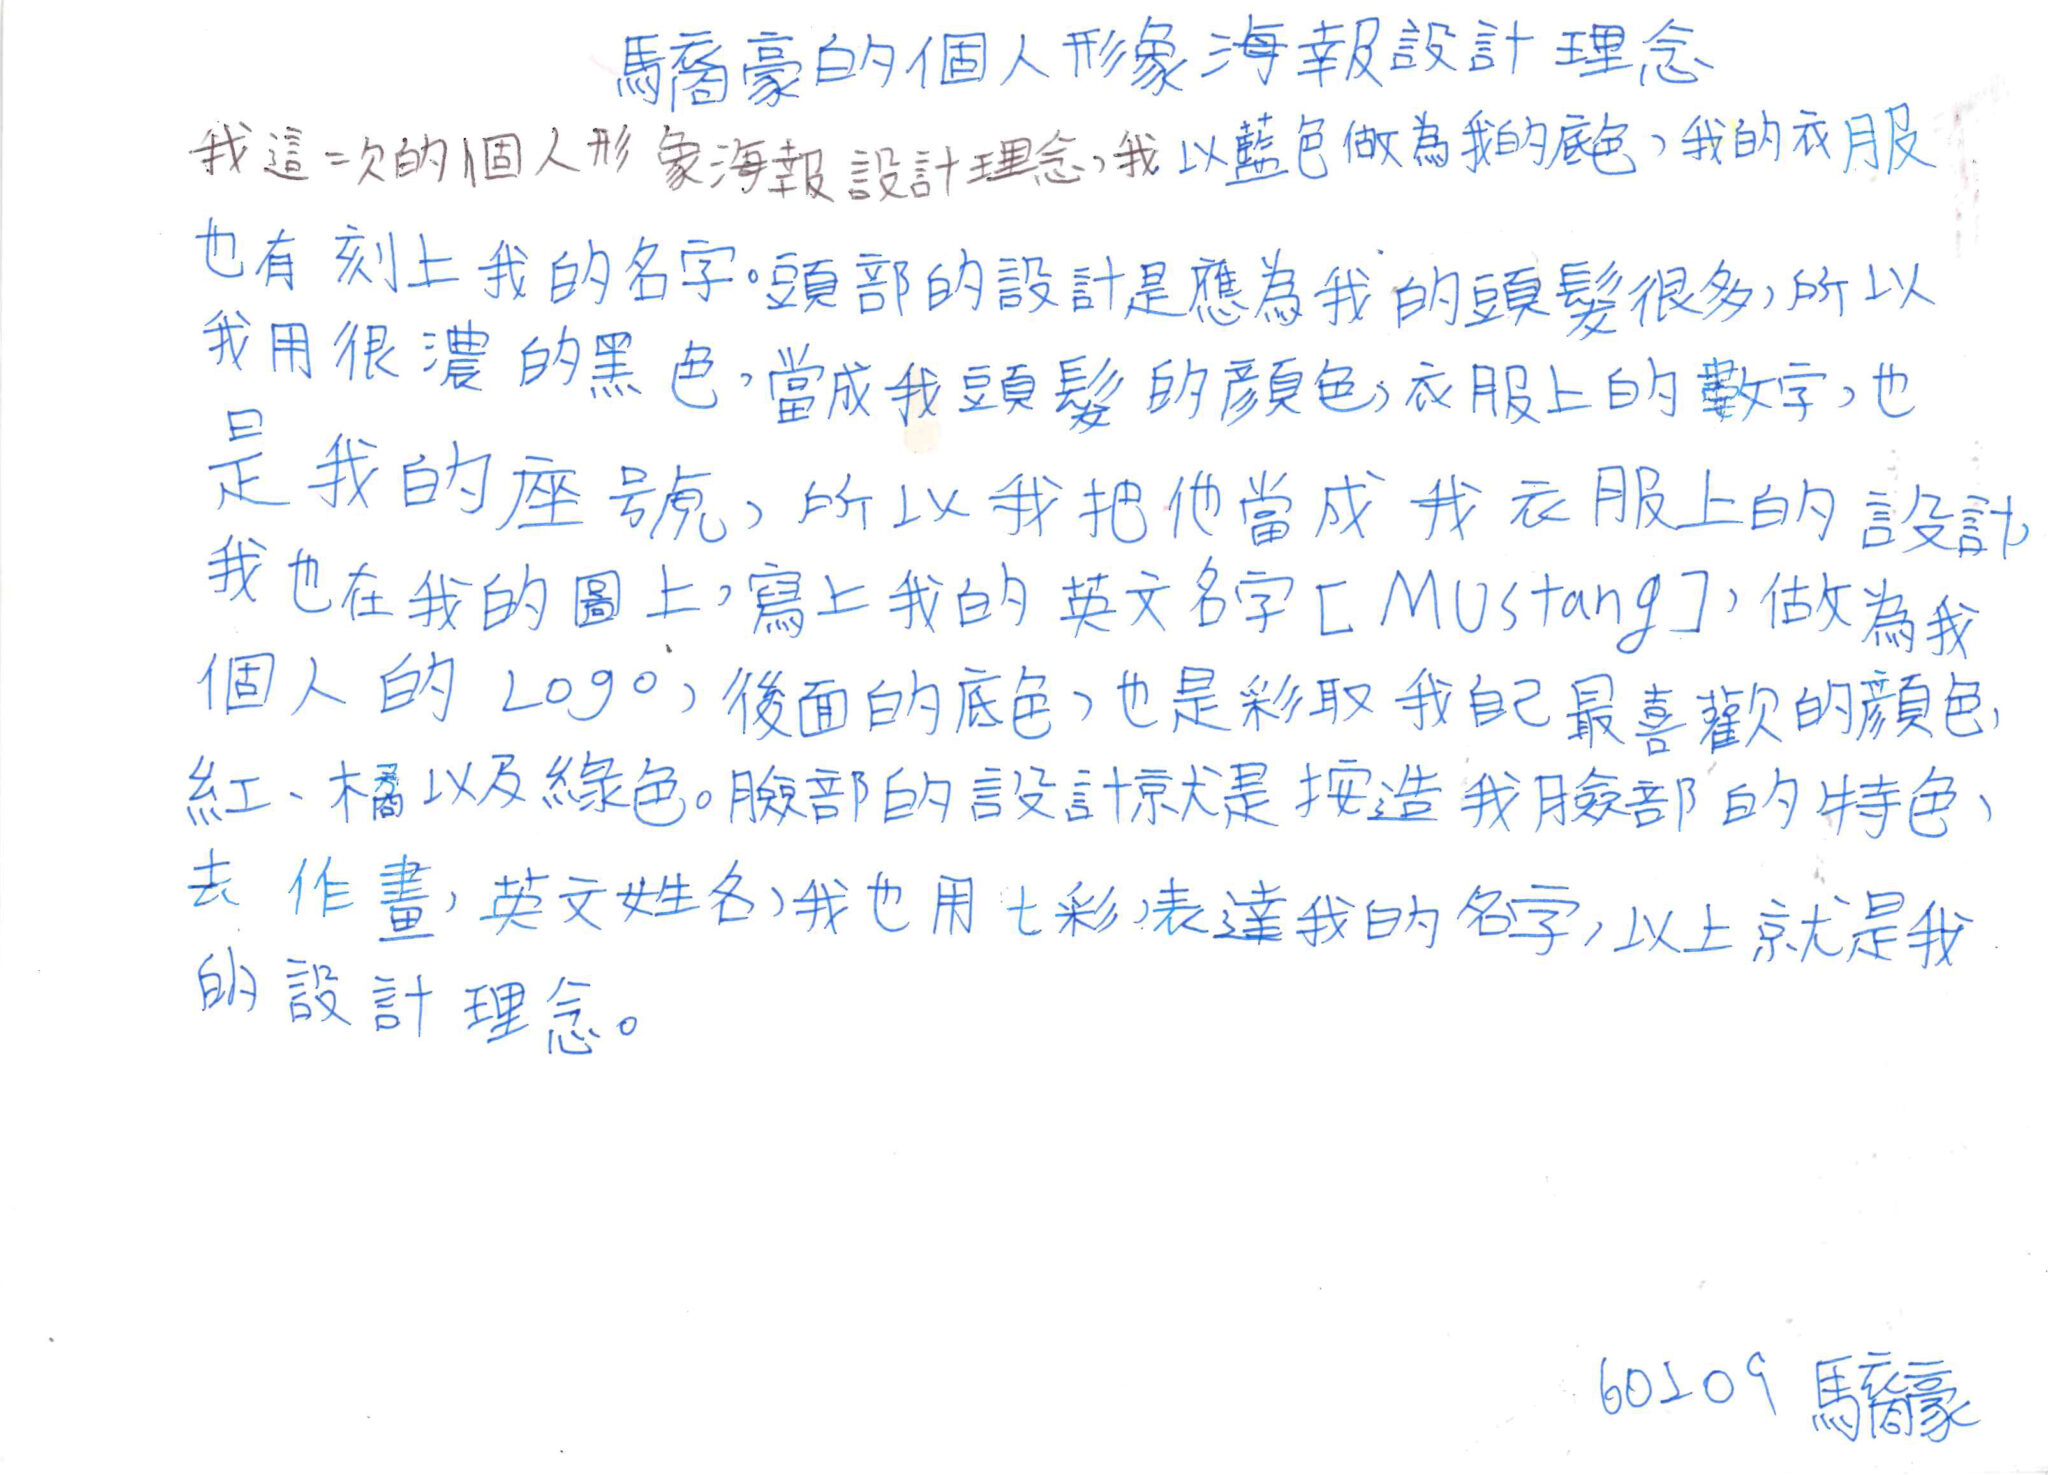 馬裔豪的個人形象海報設計理念
我這一次的個人形象海報設計理念，我以藍色做為我的底色，我的衣服
也有刻上我的名字。頭部的設計是應為我的頭髮很多，所以
我用很濃的黑色，當成我頭髮的顏色，衣服上的數字，也
是我的座號，所以我把他當成我衣服上的設計，
我也在我的圖上，寫上我的英文名字[MUstang]，做為我
個人的Logo，後面的底色，也是彩取我自己最喜歡的顏色，
紅、橘以及綠色。臉部的設計就是按造我臉部的特色，
去作畫，英文姓名，我也用七彩，表達我的名字，以上就是我
的設計理念。
60109 馬裔豪